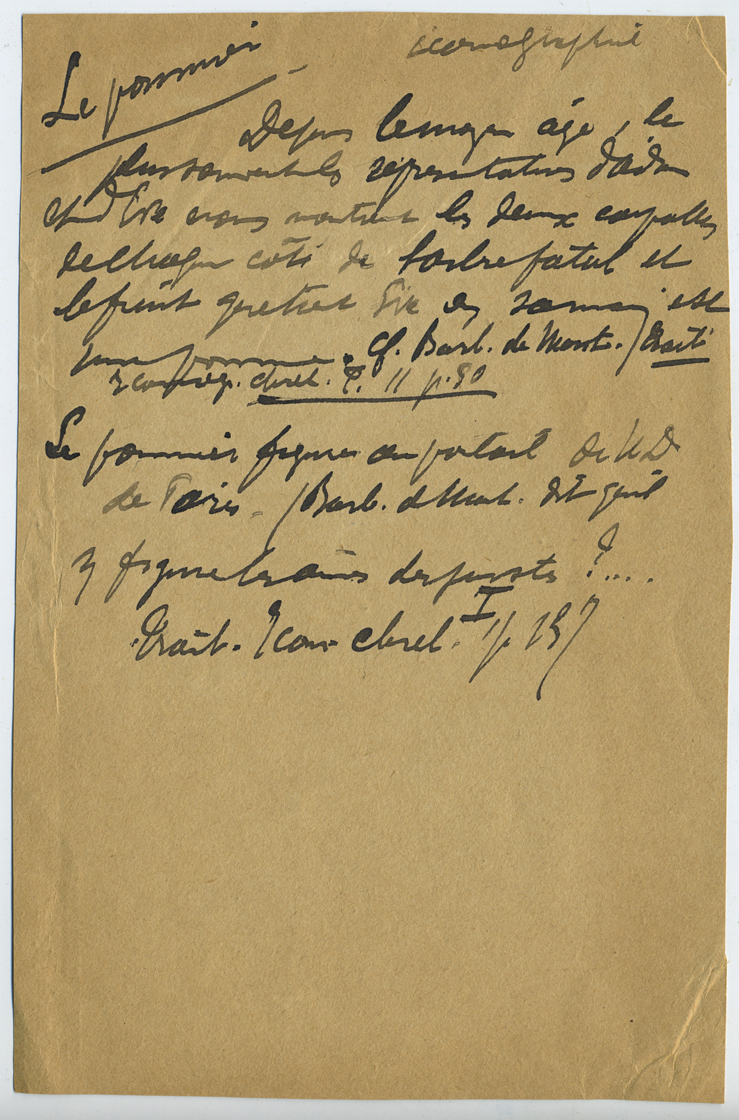 Le pommier
iconographie
Depuis le moyen âge, le
plus souvent les représentations d'Adam
et d'Eve nous montrent les deux coupables
de chaque côté de l'arbre fatal et
le fruit que tient Eve en sa main est
une pomme. Cf. Barb. de Mont. / Traité
Iconog. chret. T. II p. 90
Le pommier figure au portail de N.D
de Paris. / Barb. de Mont. dit qu'il
y figure les âmes des justes ?....
Trait. Icon. chret. I p. 157